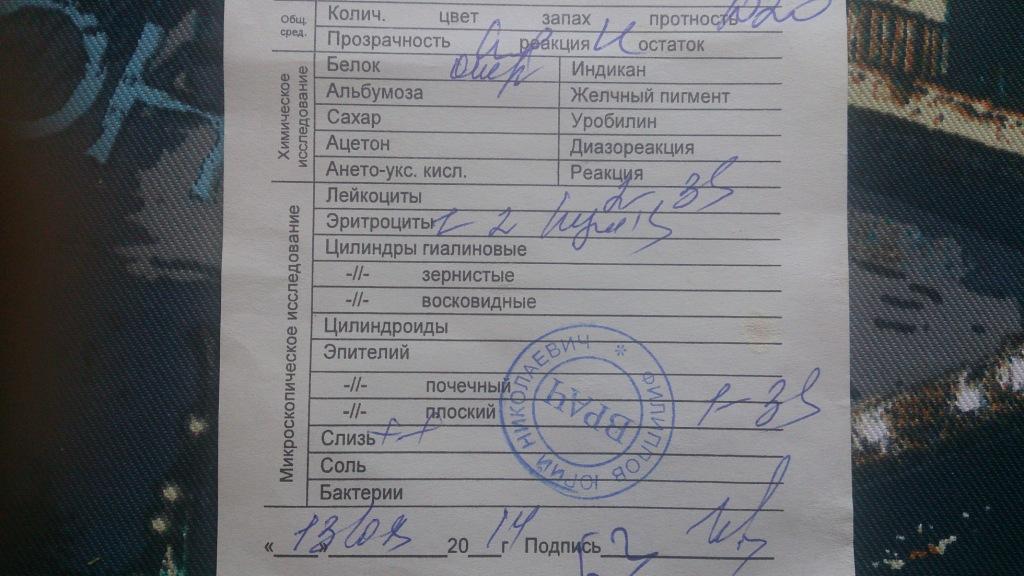 Общ. сред.
Колич. цвет запах протность 1020
Прозрачность реакция остаток
Химическое исследование
Белок
Индикан
Альбумоза
Желчный пигмент
Сахар
Уробилин
Ацетон
Диазореакция
Ането-укс. кисл.
Реакция
Микроскопическое исследование
Лейкоциты 2-3
Эритроциты 1-2
Цилиндры гиалиновые
-//- зернистые
-//- восковидные
Цилиндроиды
Эпителий
-//- почечный
-//- плоский 1-3
Слизь ++
Соль
Бактерии
ФИЛИППОВ ЮРИЙ НИКОЛАЕВИЧ *
ВРАЧ
« 13 20 14 г Подпись